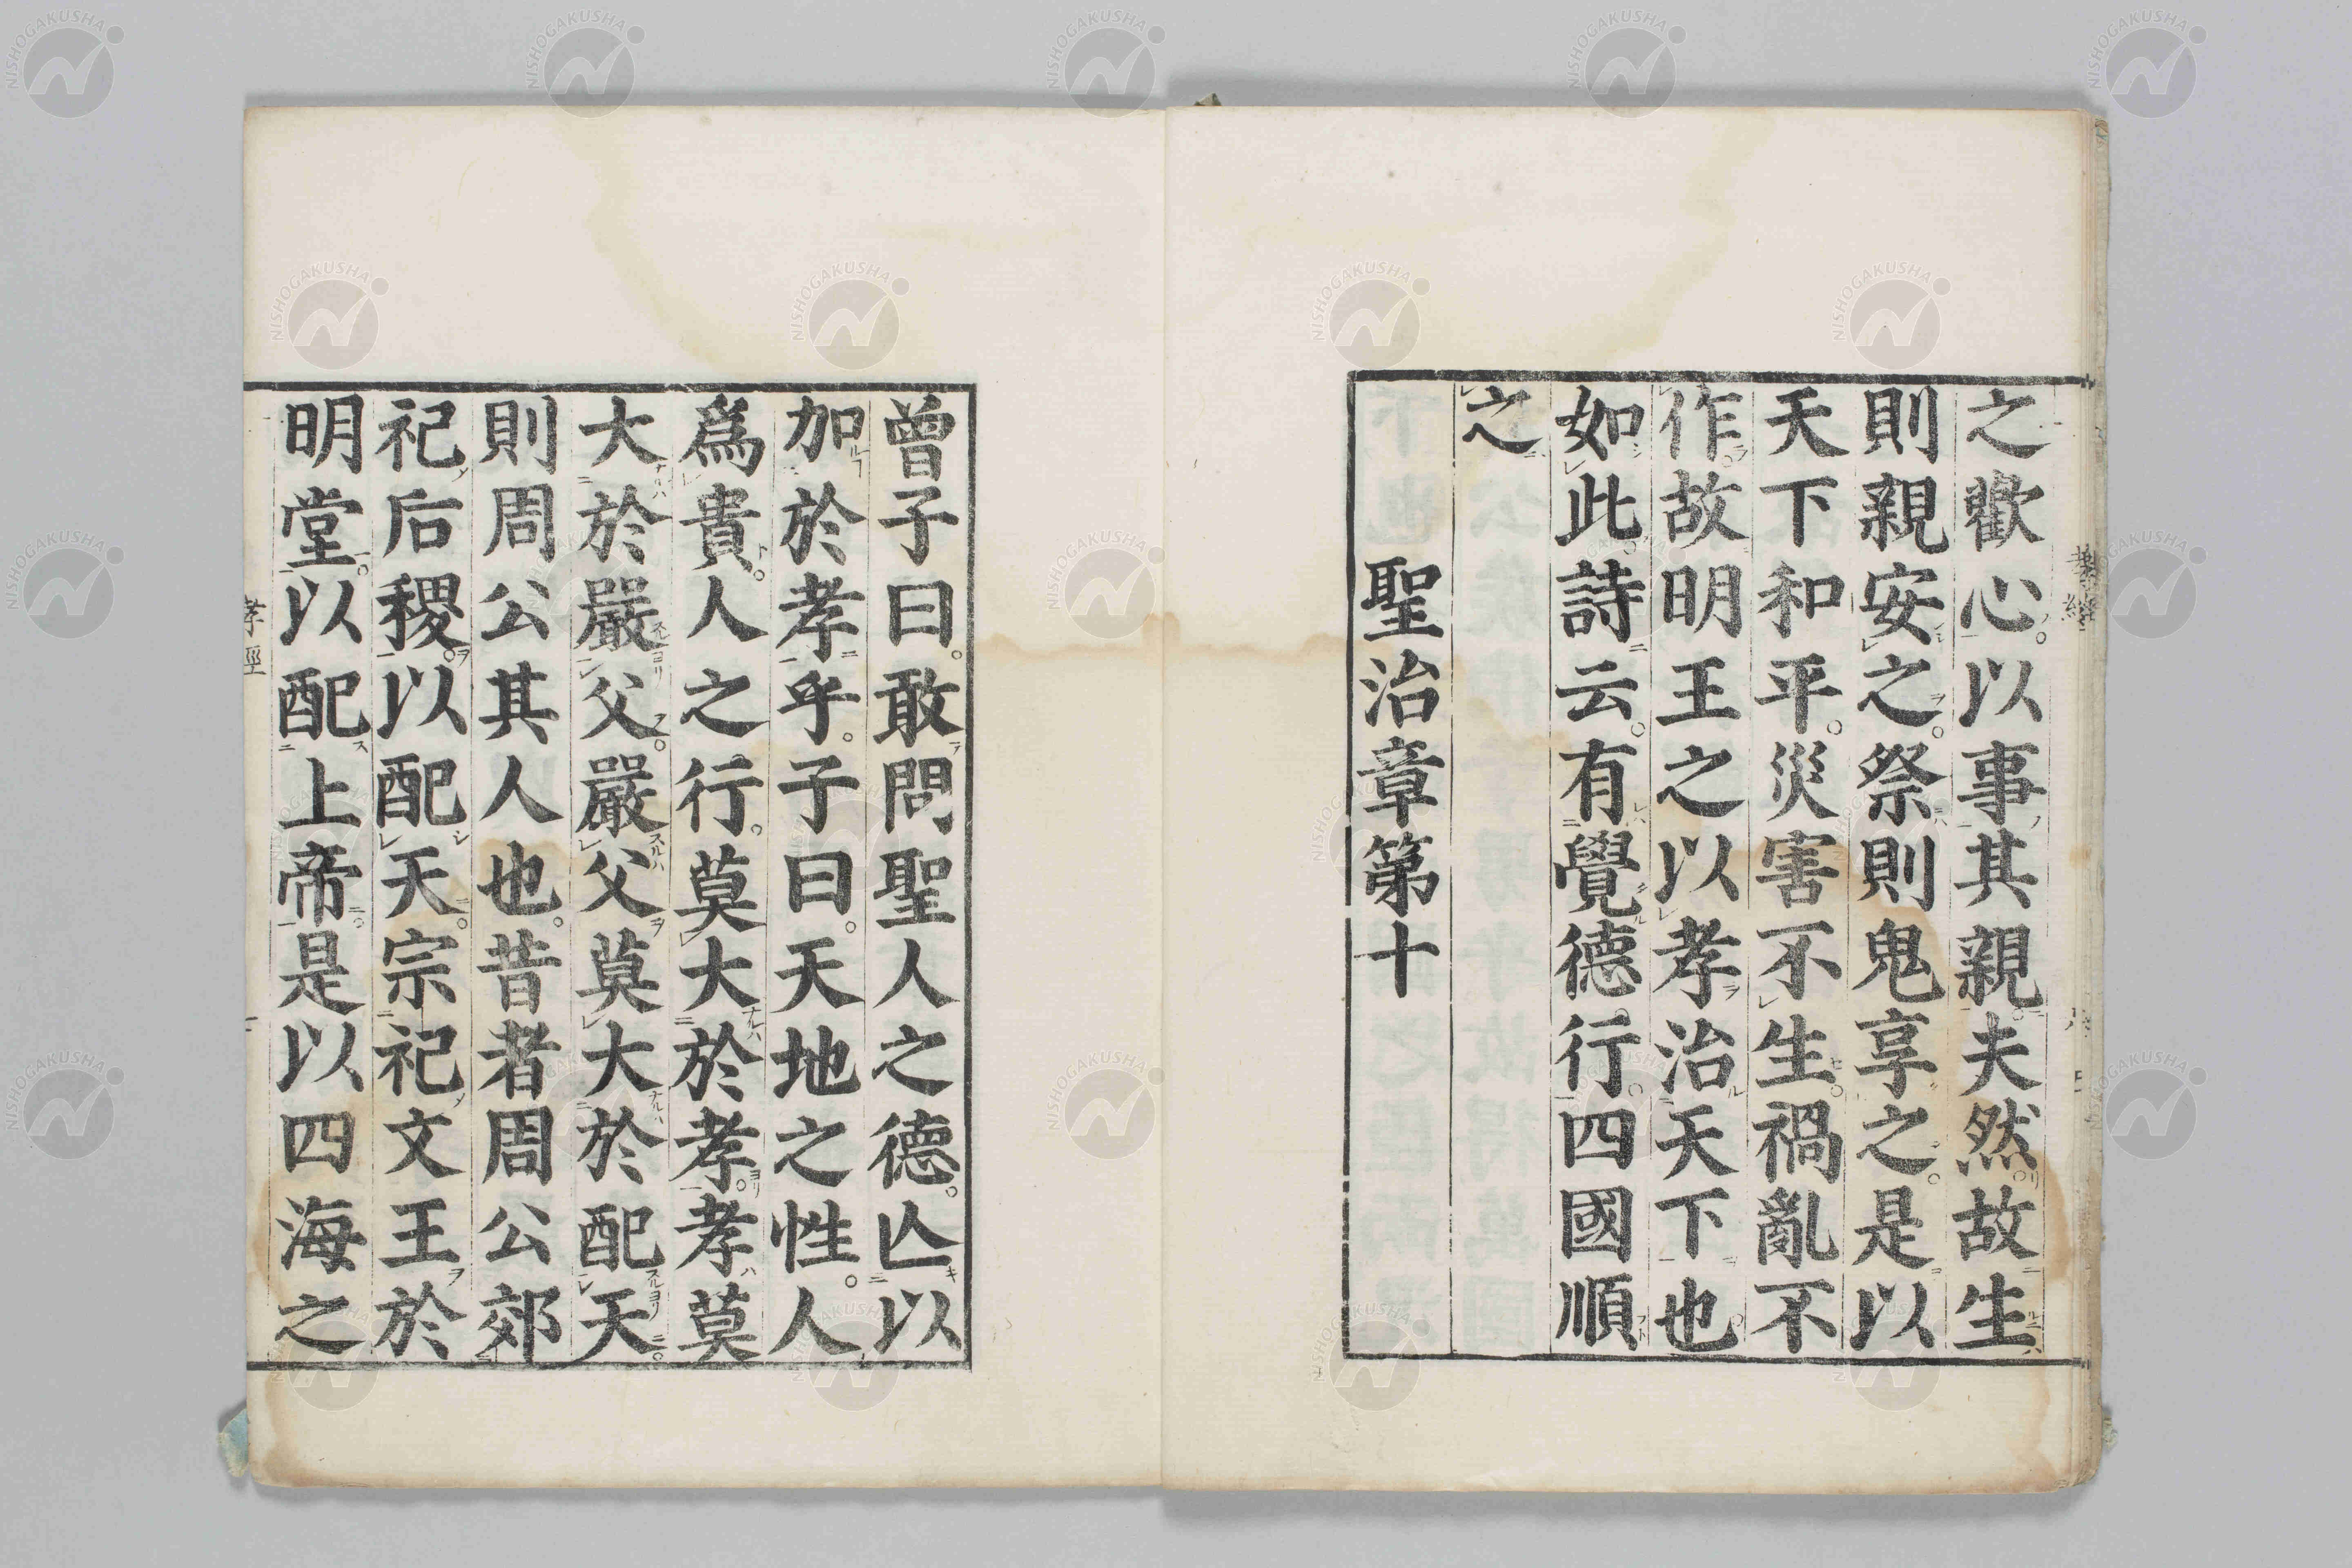 之歡心。以事其親。夫然。故生
則親安之。祭則鬼享之。是以
天下和平。災害不生。禍亂不
作。故明王之以孝治天下也
如此。詩云。有覺德行。四國順
之
聖治章第十
曾子曰。敢問聖人之德。亾以
加於孝乎。子曰。天地之性。人
爲貴。人之行。莫大於孝。孝莫
大於嚴父。嚴父莫大於配天。
則周公其人也。昔者周公郊
祀后稷。以配天。宗祀文王於
明堂。以配上帝。是以四海之
孝經
NISHOGAKUSHA